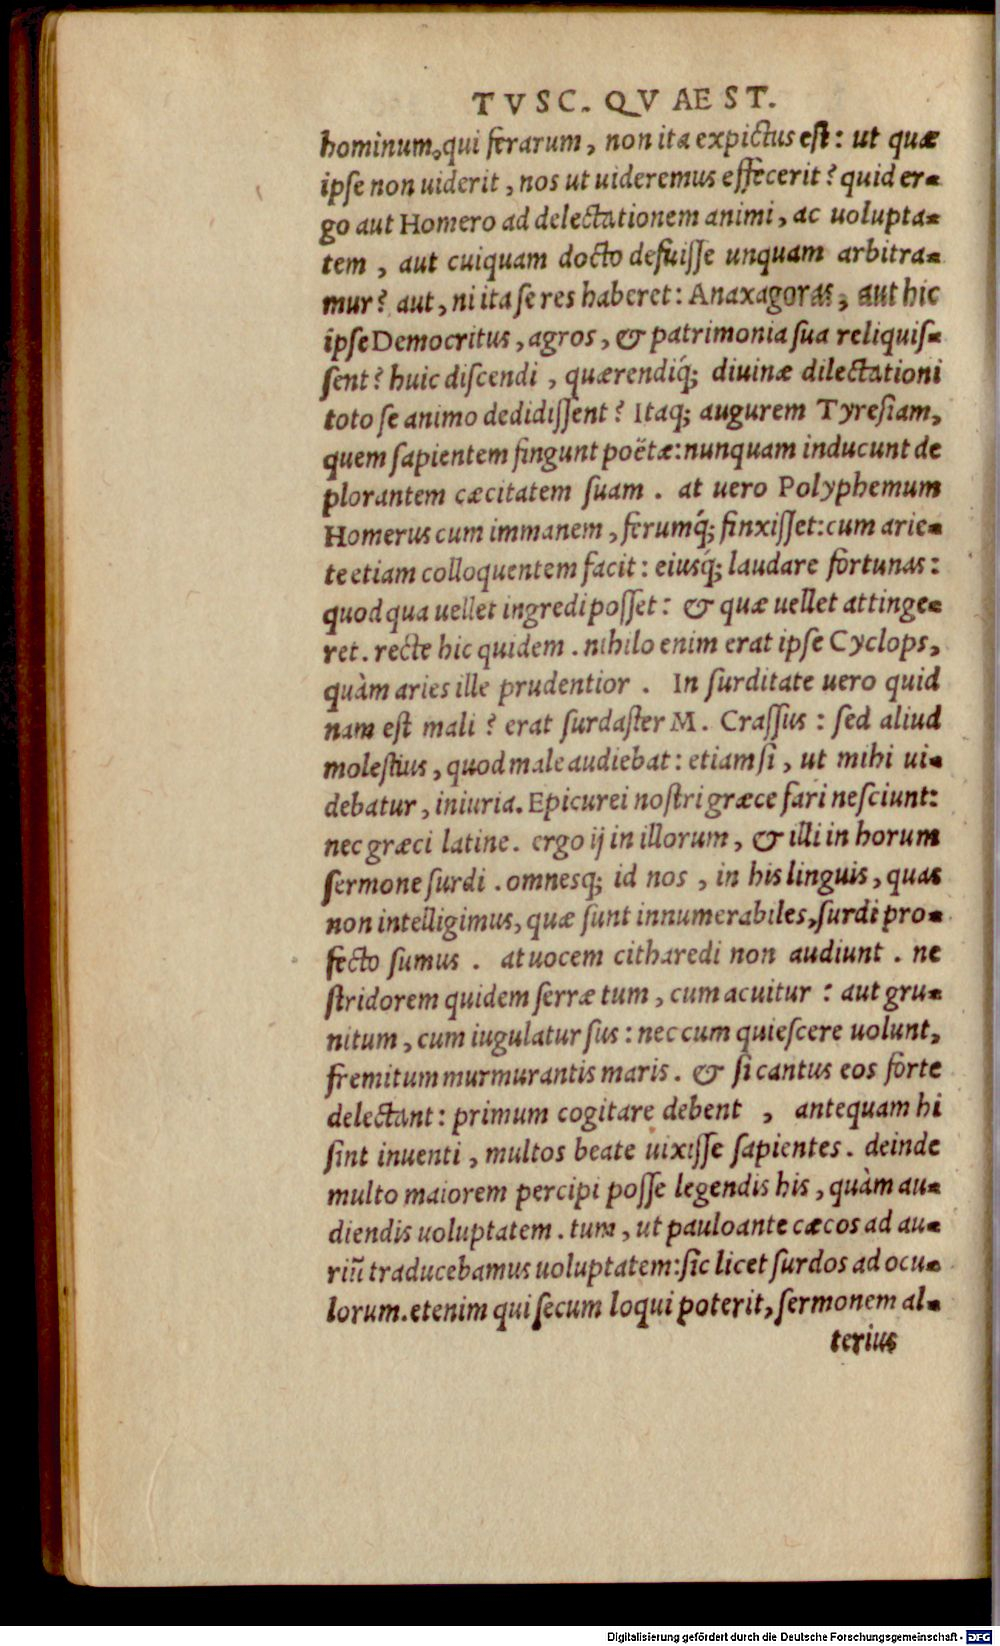 TVSC. QVAEST.
hominum, qui ferarum, non ita expictus est: ut quæ
ipse non uiderit, nos ut uideremus effecerit? quid er-
go aut Homero ad delectationem animi, ac uolupta-
tem, aut cuiquam docto defuisse unquam arbitra-
mur? aut, ni ita se res haberet: Anaxagoras, aut hic
ipse Democritus, agros, & patrimonia sua reliquis-
sent? huic discendi, quærendiq́; diuinæ dilectationi
toto se animo dedidissent? Itaq; augurem Tyresiam,
quem sapientem fingunt poëtæ: nunquam inducunt de
plorantem cæcitatem suam. at uero Polyphemum
Homerus cum immanem, ferumq́; finxisset: cum arie-
te etiam colloquentem facit: eiusq́; laudare fortunas:
quod qua uellet ingredi posset: & quæ uellet attinge-
ret. recte hic quidem. nihilo enim erat ipse Cyclops,
quàm aries ille prudentior. In surditate uero quid
nam est mali? erat surdaster M. Crassus: sed aliud
molestius, quod male audiebat: etiam si, ut mihi ui-
debatur, iniuria. Epicurei nostri græce fari nesciunt:
nec græci latine. ergo ij in illorum, & illi in horum
sermone surdi. omnesq; id nos, in his linguis, quas
non intelligimus, quæ sunt innumerabiles, surdi pro-
fecto sumus. at uocem citharedi non audiunt. ne
stridorem quidem serræ tum, cum acuitur: aut gru-
nitum, cum iugulatur sus: nec cum quiescere uolunt,
fremitum murmurantis maris. & si cantus eos forte
delectant: primum cogitare debent, antequam hi
sint inuenti, multos beate uixisse sapientes. deinde
multo maiorem percipi posse legendis his, quàm au-
diendis uoluptatem. tum, ut paulo ante cæcos ad au-
riū traducebamus uoluptatem: sic licet surdos ad ocu-
lorum. etenim qui secum loqui poterit, sermonem al-
terius
Digitalisierung gefördert durch die Deutsche Forschungsgemeinschaft - DFG